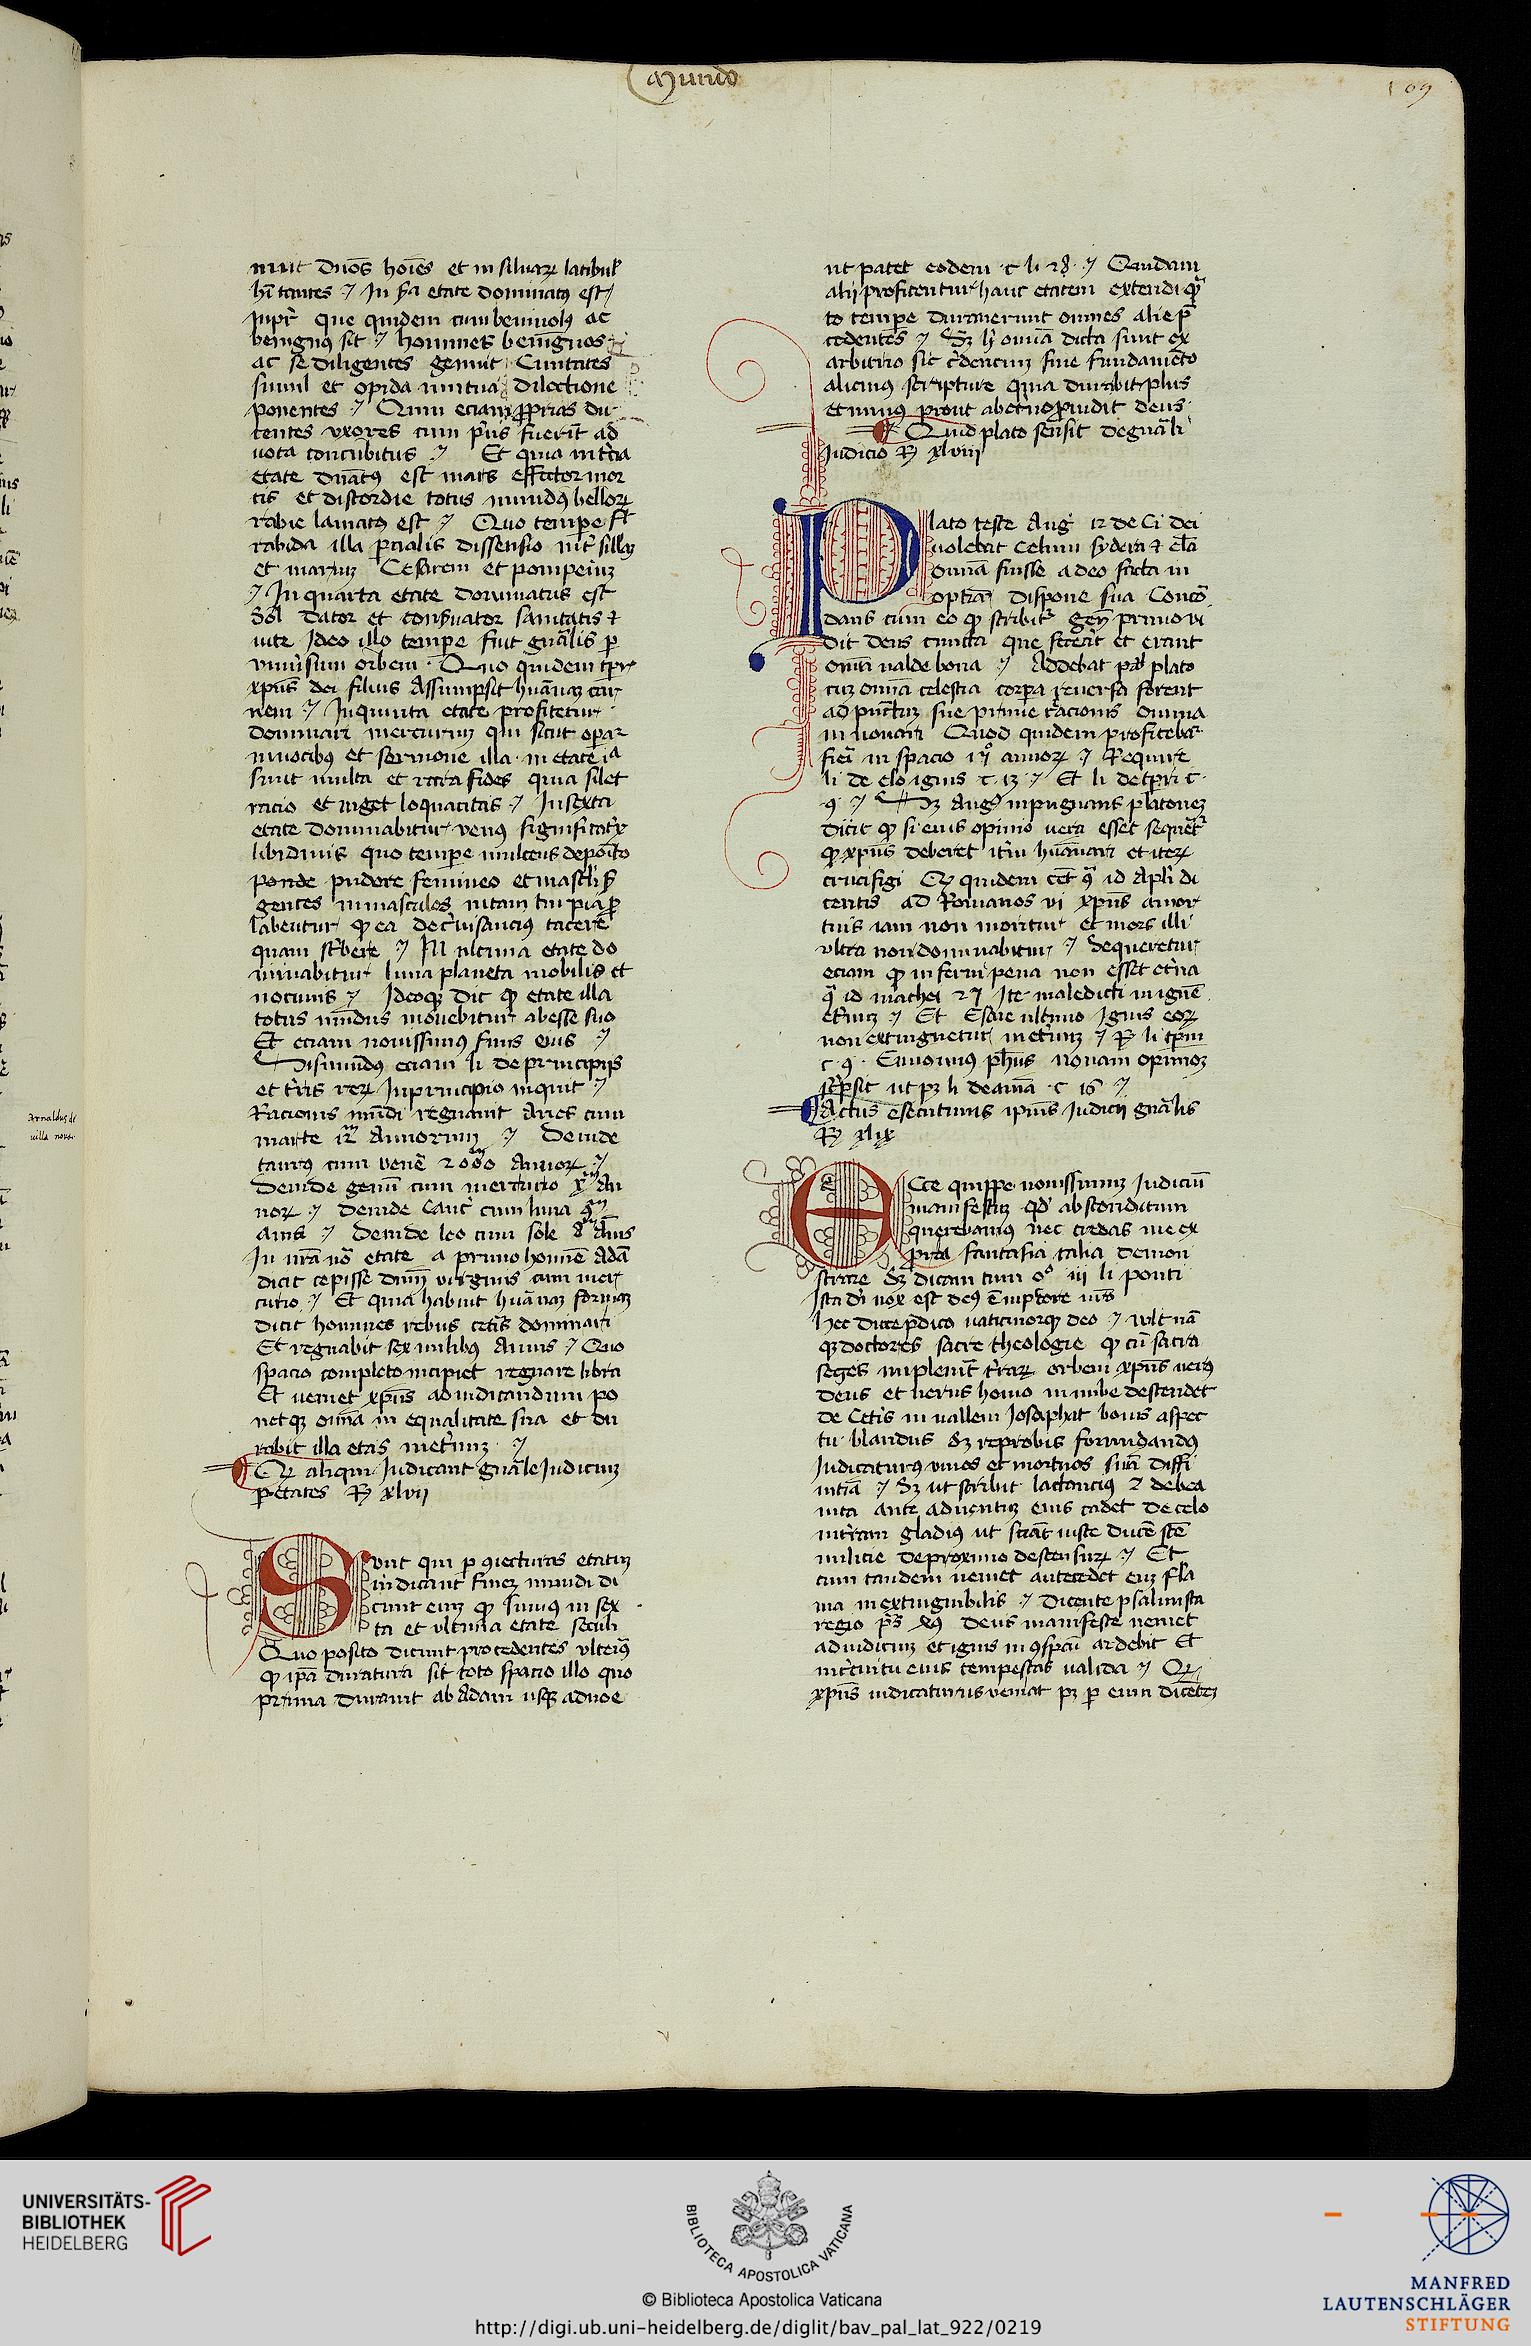 Mundo
109
nuit duos hoies et in siluaꝝ latibul
hītantes In scda etate dominatus est
Jupiter que quidem cum beniuolus ac
benignus sit homines benignos
ac se diligentes genuit Ciuitates
simul et opida mutua dilectione
ponentes Qum eciam proprias du
centes vxores cum prius fuerīt ad
uota concubitus Et quia in tercia
etate dnatus est mars effector mor
tis et discordie totus mundus belloꝝ
rabie laniatus est Quo tempe
rabida illa pcialis dissensio int sillaz
et mariuz Cesarem et pompeiuz
In quarta etate dominatus est
Sol dator et conseruator sanitatis et
uite Ideo illo tempe fuit gnalis
vniuersum orbem Quo quidem tpre
xpus dei filius Assumpsit huānaz car
nem In quinta etate profitetur
dominari mercurium qui sicut opar
in uocibus et sermone illa in etate
sunt multa et rara fides quia silet
racio et uiget loquacitas In sexta
etate dominabitur venus significatrix
libidinis quo tempe
ponde pudore femineo et
gentes in masculos
labentur qd ea tacere
quam scbere In ultima etate do
minabitur luna planeta mobilis et
nociuus Ideoqz dic qd etate illa
totus mūdus mouebitur abesse suo
Et eciam nouissimus finis eius
eciam li de principiis
et rerꝝ In principio inquit
Racionis mūdi regnauit Aries cum
marte 12 Annorum Deinde
taurus cum venē 2000 Annoꝝ
Deinde gemi cum mercurio x An
noꝝ Deinde Cancer cum luna
Deinde leo cum sole 8 Anis
In nrā etate a primo homīe Adā
dicit cepisse virginis cum mer
curio Et quia habuit huānaz formaz
dicit homines rebus ceteris dominari
Et regnabit sex milibus Annis Quo
spacio completo incipiet regnare libra
Et ueniet xpus ad iudicandum po
netqz omīa in equalitate sua et du
rabit illa etas in eternuz
Qd aliqui Judicant gnāle Judiciuz
per etates xlvii
Sunt qui per coniecturas etatuz
indicant finez mundi di
cunt eniz qd sumus in sex
ta et vltima etate seculi
Quo posito dicunt procedentes vlterius
qd ipā duratura sit toto spacio illo quo
prima durauit ab Adam usqz ad noe
ut patet eodem c li 28 Quidam
alij profitentur hanc etatem extendi
to tempe durauerunt omnes alie p
cedentes omīa dicta sunt ex
arbitrio sic credencium sine fundamēto
alicuius scripture quia durabit plus
et minus prout ab eterno prouidit deus
Quid plato sensit de gnāli
Judicio xlviii
Plato teste Aug 12 de Ci dei
uolebat celum sydera et
omīa fuisse a deo facta in
optia dispone sua Concor
dans cum eo qd scribitur gen primo vi
dit deus cuncta que fecerat et erant
omīa valde bona Addebat plato
cuz omīa celestia corpora reuersa forent
ad punctuz sue prime racionis omnia
in nouari Quod quidem profitebar
fieri in spacio annoꝝ Require
li de elo ignis c 13 Et li de tpri c
9 Aug impugnans platonez
dicit qd si eius opinio uera esset sequerer
qd xpus deberet iterum huānari et iteꝝ
crucifigi Qd quidem id Apli di
centis ad Romanos vi xpus a mor
tuis iam non moritur et mors illi
vltra non dominabitur Sequeretur
eciam qd inferni pena non esset eterna
id mathei 25 Ite maledicti in ignē
eternuz Et Esaie ultimo Ignis eoꝝ
non extinguetur in eternuz li
c 9 phus nouam opinioz
scripsit ut pz li de aniā c 16
Actus esecutiuus ipius Judicij gnālis
xlix
Ecce quippe nouissimuz Judiciū
manifestuz qd absconditum
querebamus nec credas me ex
pria fantasia talia demon
strare Sz dicam cum iii li ponti
Ista di nox est
Hec duce pdico vaticinorqz deo
qz doctores sacre theologie qd cū sacra
seges impleuīt orbem xpus uerus
deus et uerus homo in nube descendet
de Celis in vallem Josaphat bonis aspec
tu blandus Sz reprobis formidandus
Judicaturus viuos et mortuos diffi
Sz ut scribit lactancius
ante aduentuz eius cadet de celo
gladius ut sciāt iuste ducē
milicie de proximo descensuꝝ Et
cum tandem ueniet antecedet euz fla
ma inextinguibilis Dicente psalmista
regio Deus manifeste ueniet
ad iudiciuz et ignis in ardebit Et
in circuitu eius tempestas valida
xpus iudicaturus veniat pz p eum
Arnaldus de
villa noua
UNIVERSITÄTS-
BIBLIOTHEK
HEIDELBERG
BIBLIOTECA APOSTOLICA VATICANA
© Biblioteca Apostolica Vaticana
http://digi.ub.uni-heidelberg.de/diglit/bav_pal_lat_922/0219
MANFRED
LAUTENSCHLÄGER
STIFTUNG